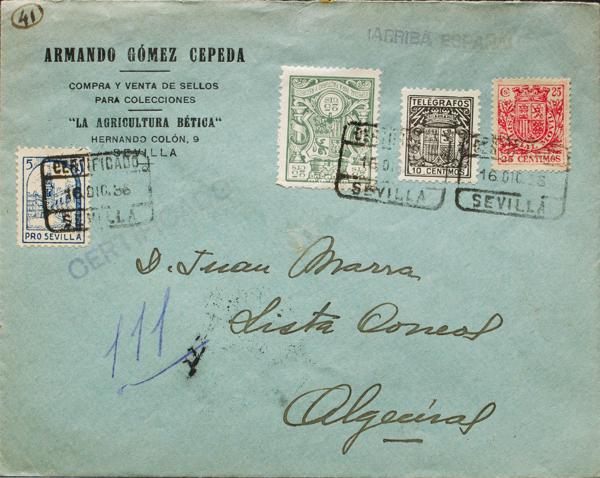 41
¡ARRIBA ESPAÑA!
ARMANDO GÓMEZ CEPEDA
COMPRA Y VENTA DE SELLOS
PARA COLECCIONES
"LA AGRICULTURA BÉTICA"
HERNANDO COLÓN, 9
SEVILLA
TELÉGRAFOS
10 CENTIMOS
25
25 CENTIMOS
5
PRO SEVILLA
CERTIFICADO
16 DIC. 36
SEVILLA
16 DIC. 36
SEVILLA
16 DIC. 36
SEVILLA
D. Juan Marra
Lista Correos
Algeciras
111